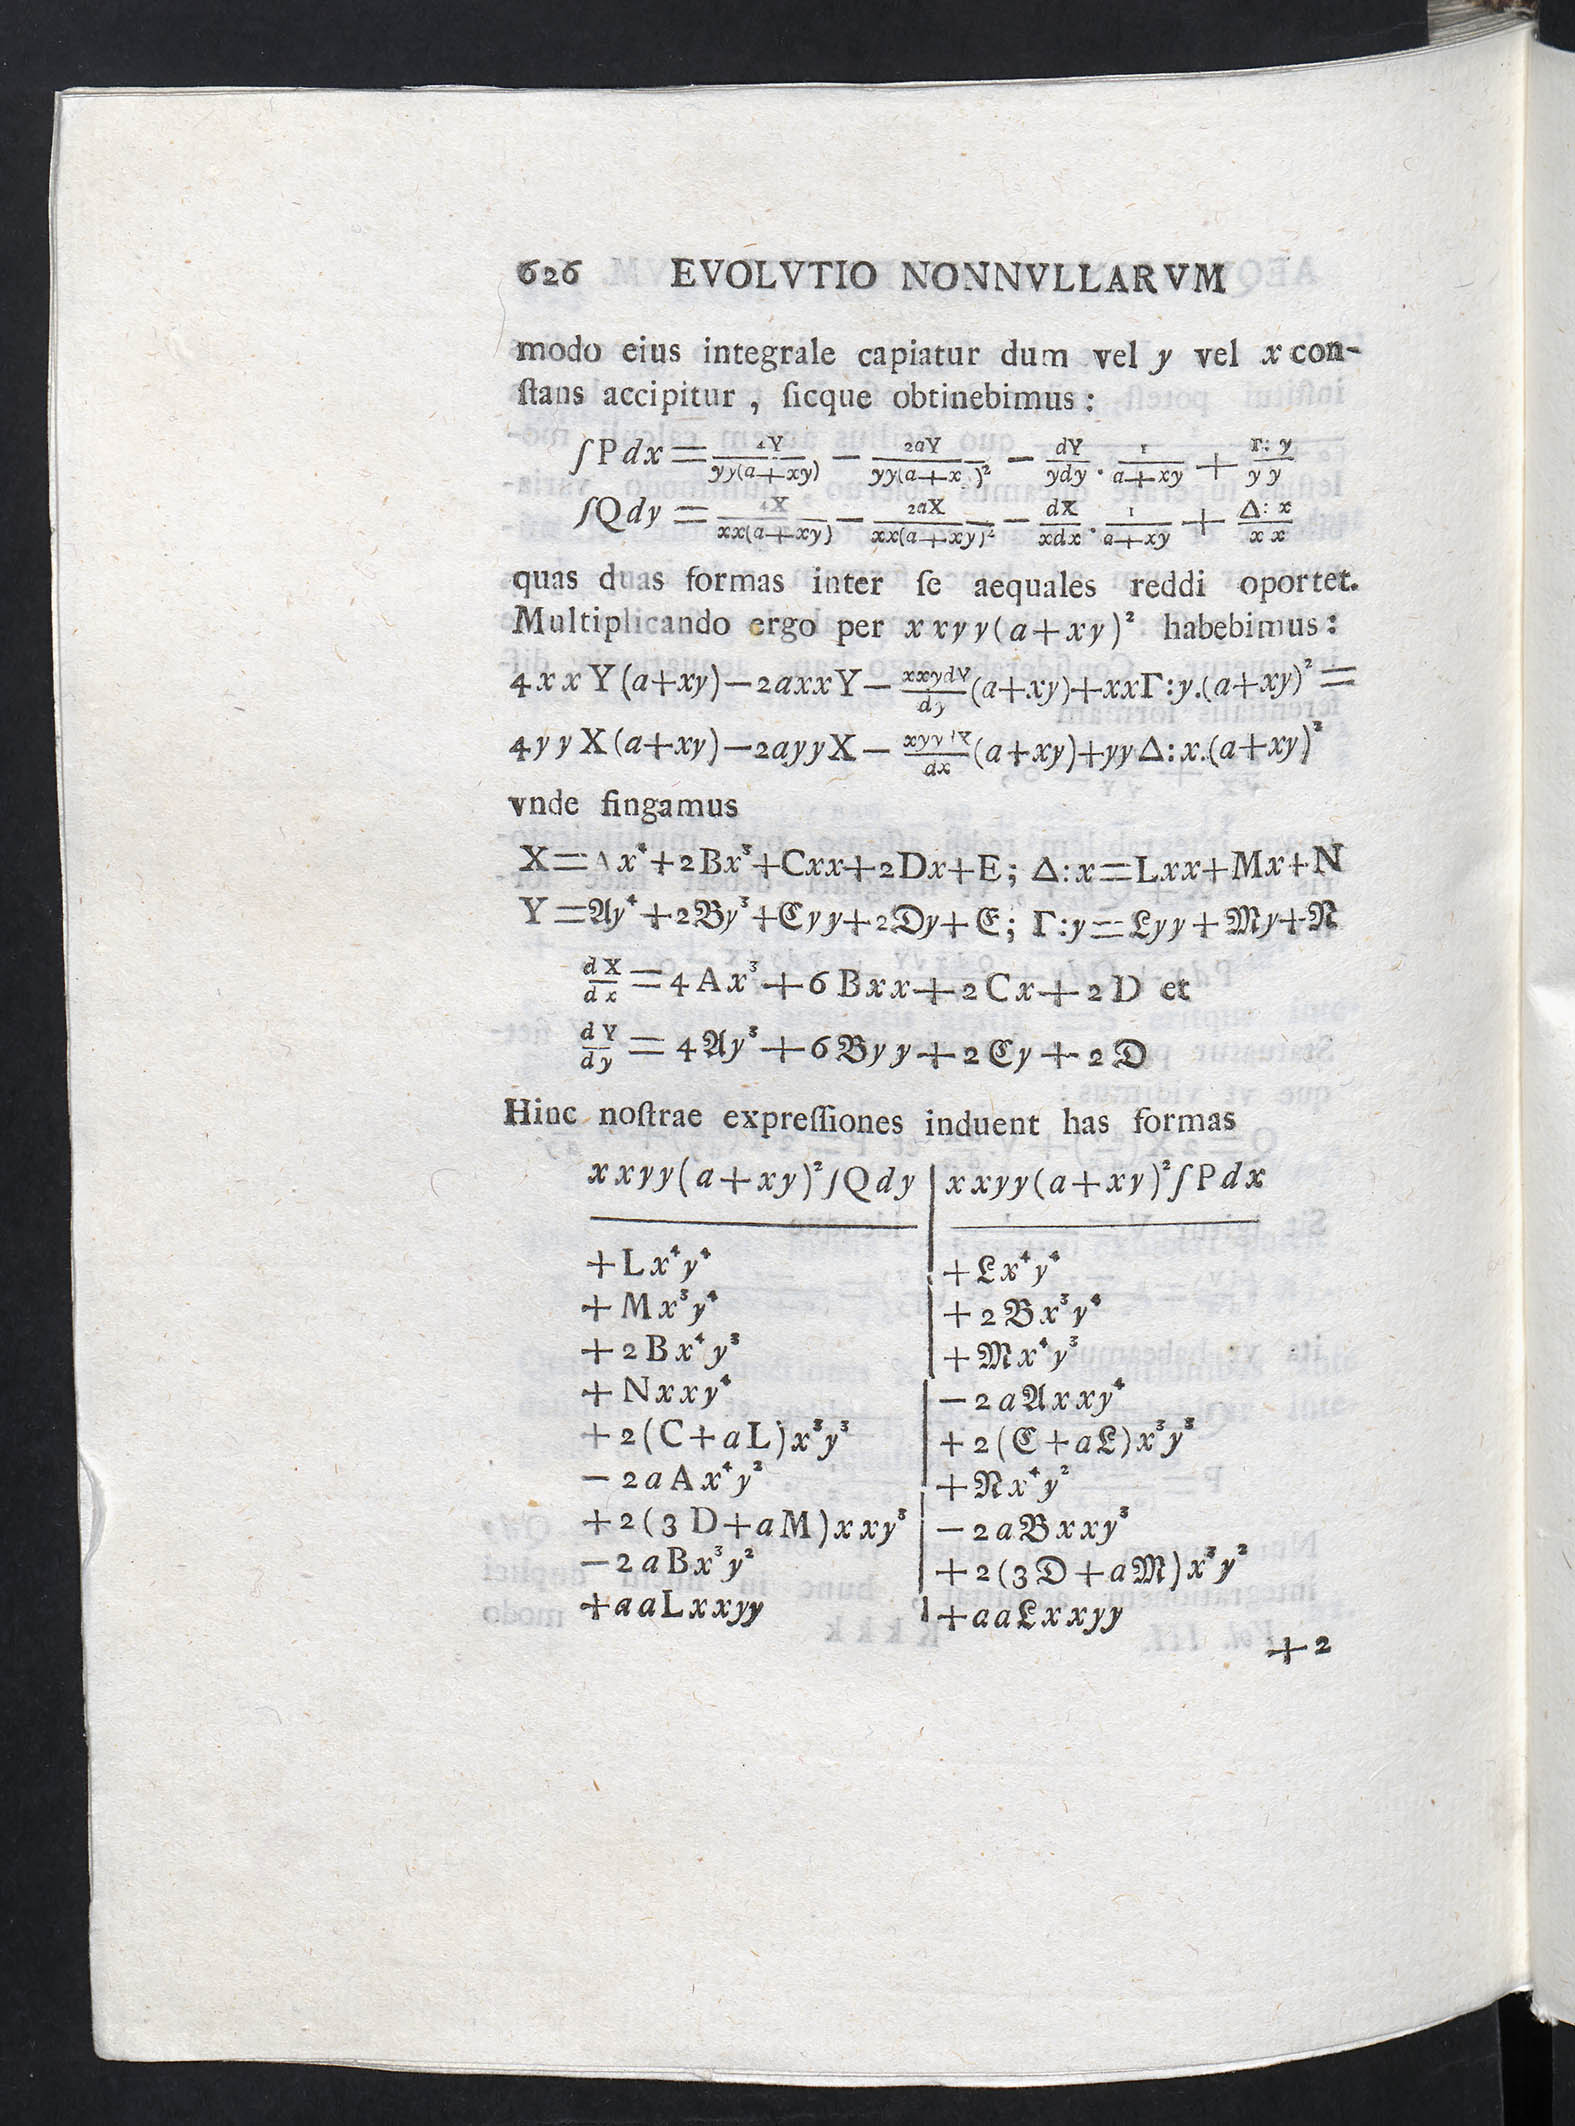 626 EVOLVTIO NONNVLLARVM
modo eius integrale capiatur dum vel y vel x con-
ſtans accipitur, ſicque obtinebimus:
∫Pdx = 4Y/yy(a+xy) − 2aY/yy(a+x )² − dY/ydy · 1/a+xy + Γ:y/yy
∫Qdy = 4X/xx(a+xy) − 2aX/xx(a+xy)² − dX/xdx · 1/a+xy + Δ:x/xx
quas duas formas inter ſe aequales reddi oportet.
Multiplicando ergo per xxyy(a+xy)² habebimus:
4xxY(a+xy)−2axxY− xxydY/dy (a+xy)+xxΓ:y.(a+xy)² =
4yyX(a+xy)−2ayyX− xyydX/dx (a+xy)+yyΔ:x.(a+xy)²
vnde fingamus
X=Ax⁴+2Bx³+Cxx+2Dx+E; Δ:x=Lxx+Mx+N
Y=𝔄y⁴+2𝔅y³+ℭyy+2𝔇y+𝔈; Γ:y=𝔏yy+𝔐y+𝔑
dX/dx = 4Ax³+6Bxx+2Cx+2D et
dY/dy = 4𝔄y³+6𝔅yy+2ℭy+2𝔇
Hinc noſtrae expreſſiones induent has formas
xxyy(a+xy)²∫Qdy | xxyy(a+xy)²∫Pdx
+Lx⁴y⁴ | +𝔏x⁴y⁴
+Mx³y⁴ | +2𝔅x³y⁴
+2Bx⁴y³ | +𝔐x⁴y³
+Nxxy⁴ | −2a𝔄xxy⁴
+2(C+aL)x³y³ | +2(ℭ+a𝔏)x³y³
−2aAx⁴y² | +𝔑x⁴y²
+2(3D+aM)xxy³ | −2a𝔅xxy³
−2aBx³y² | +2(3𝔇+a𝔐)x³y²
+aaLxxyy | +aa𝔏xxyy
+2